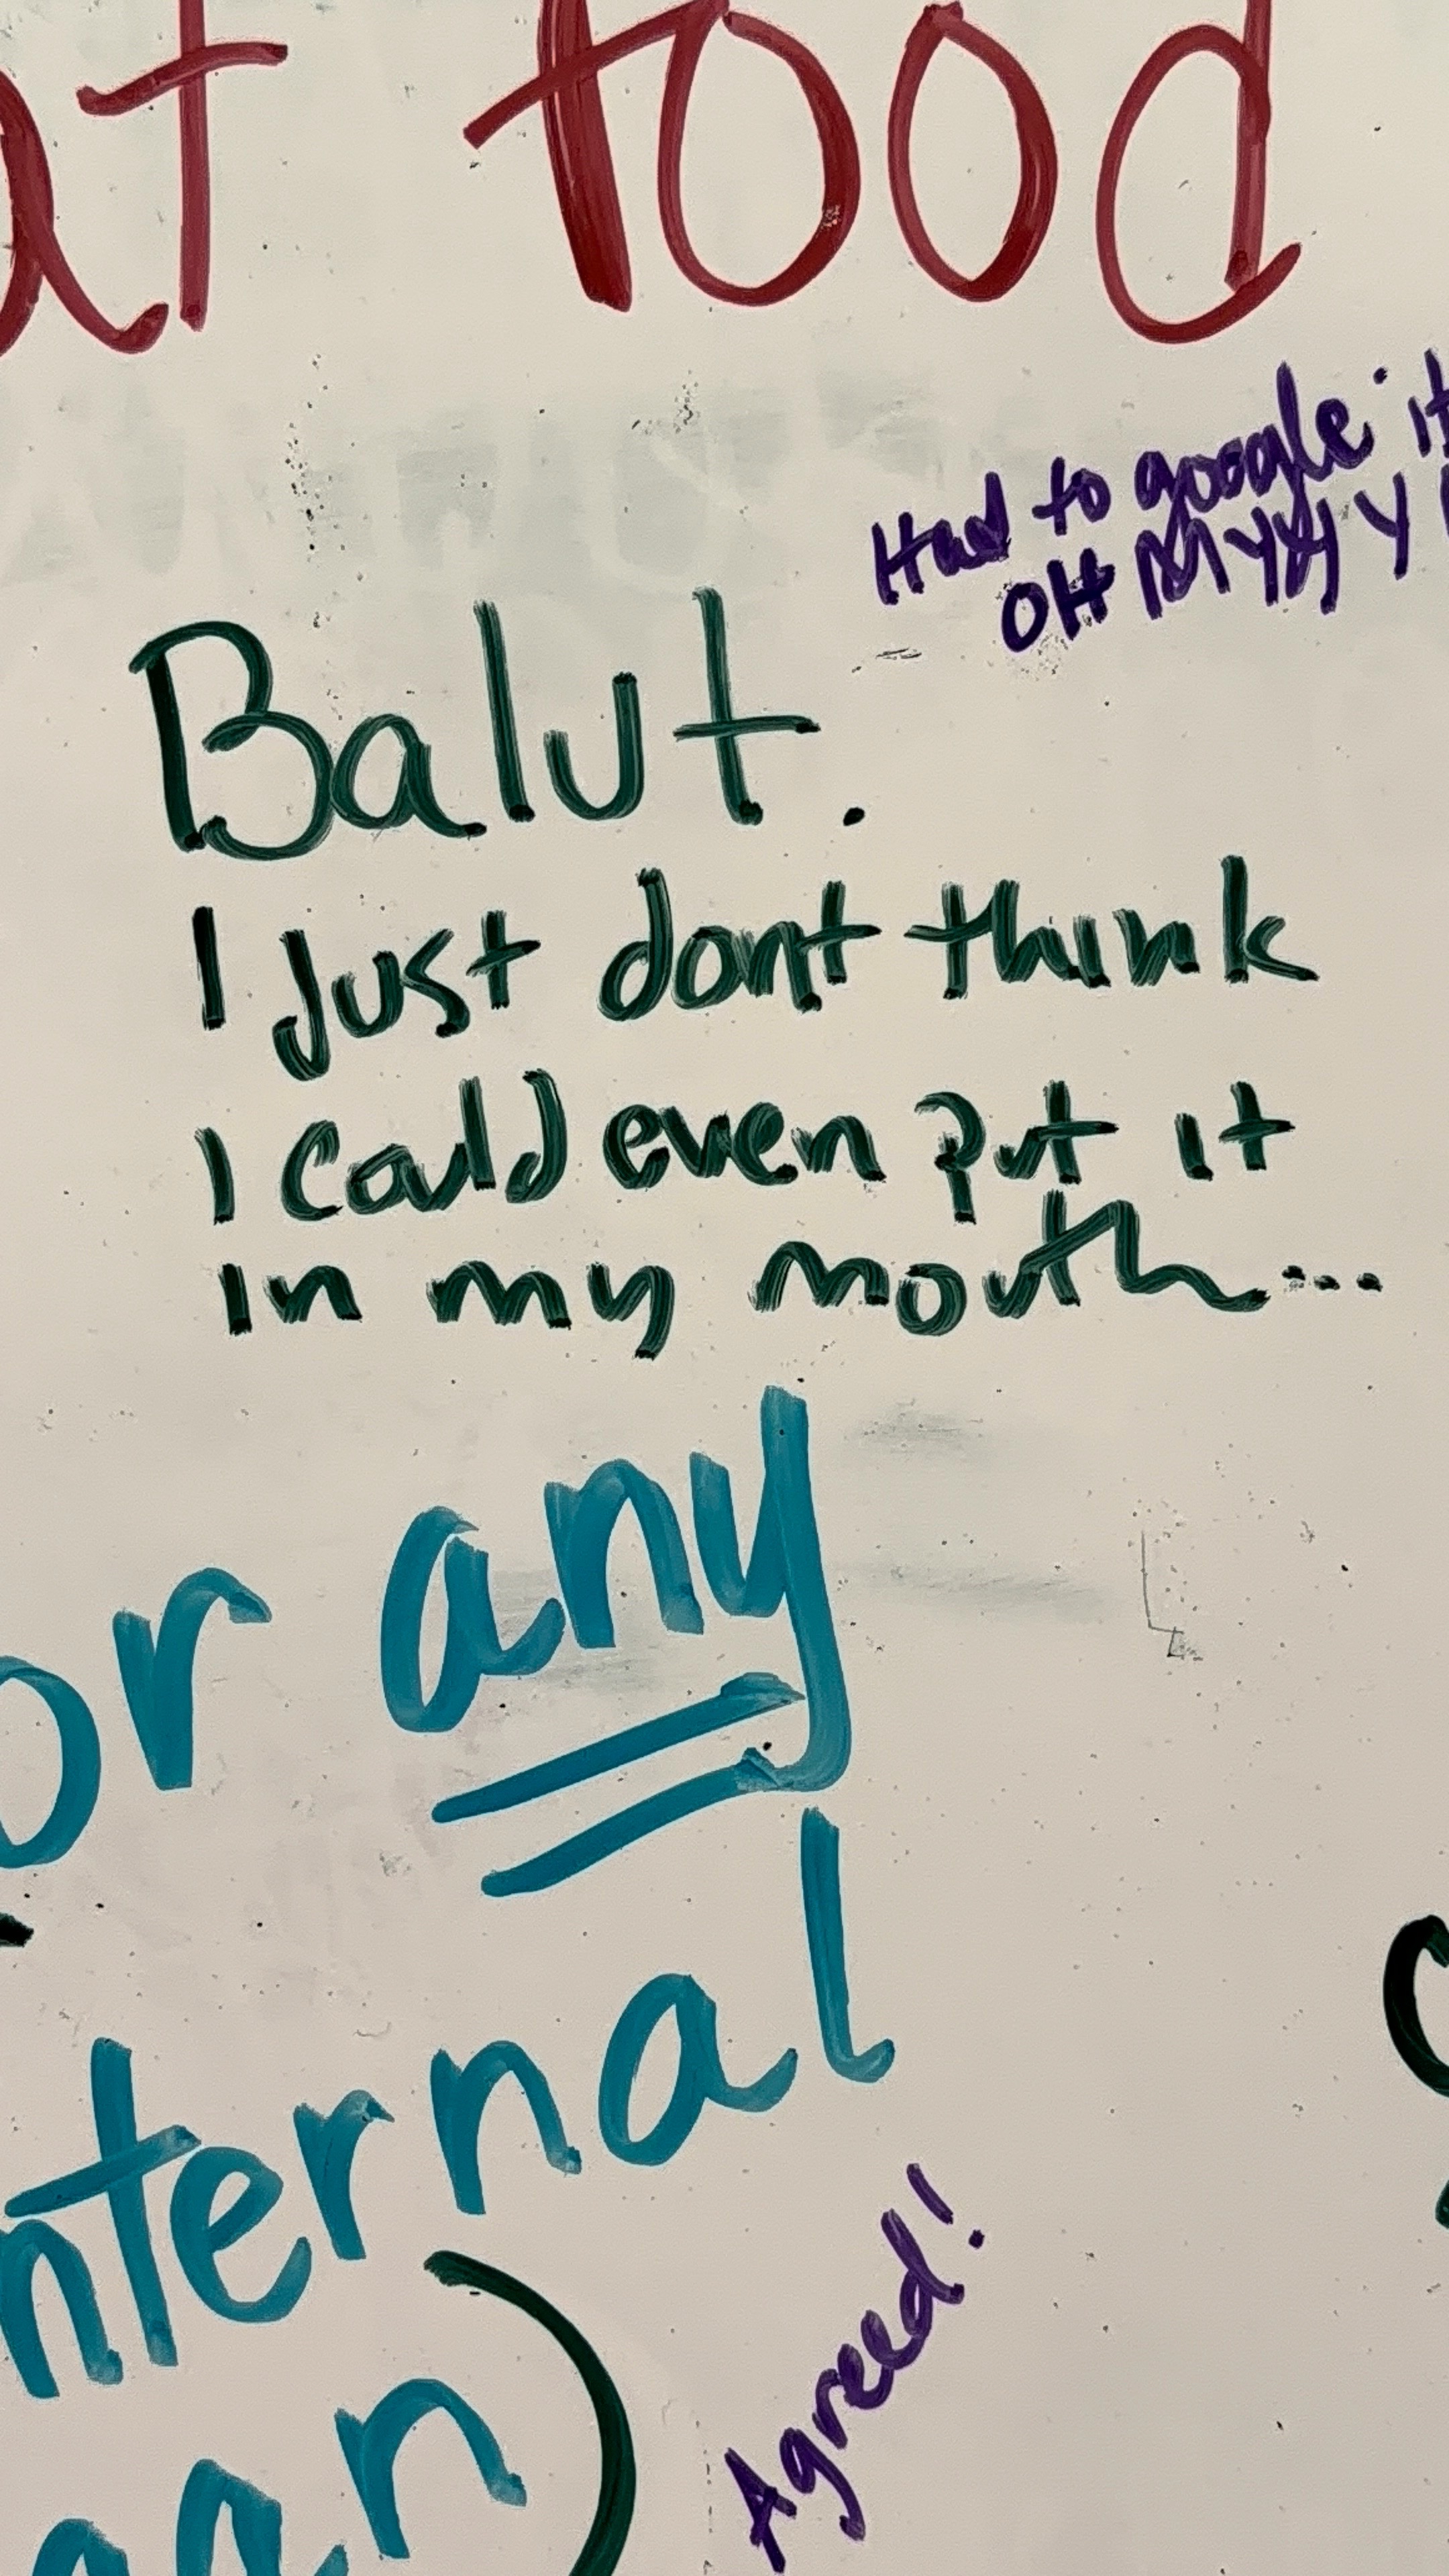 food
Had to google it
OH MYYYY
Balut.
I just dont think
I could even put it
in my mouth...
or any
Agreed!